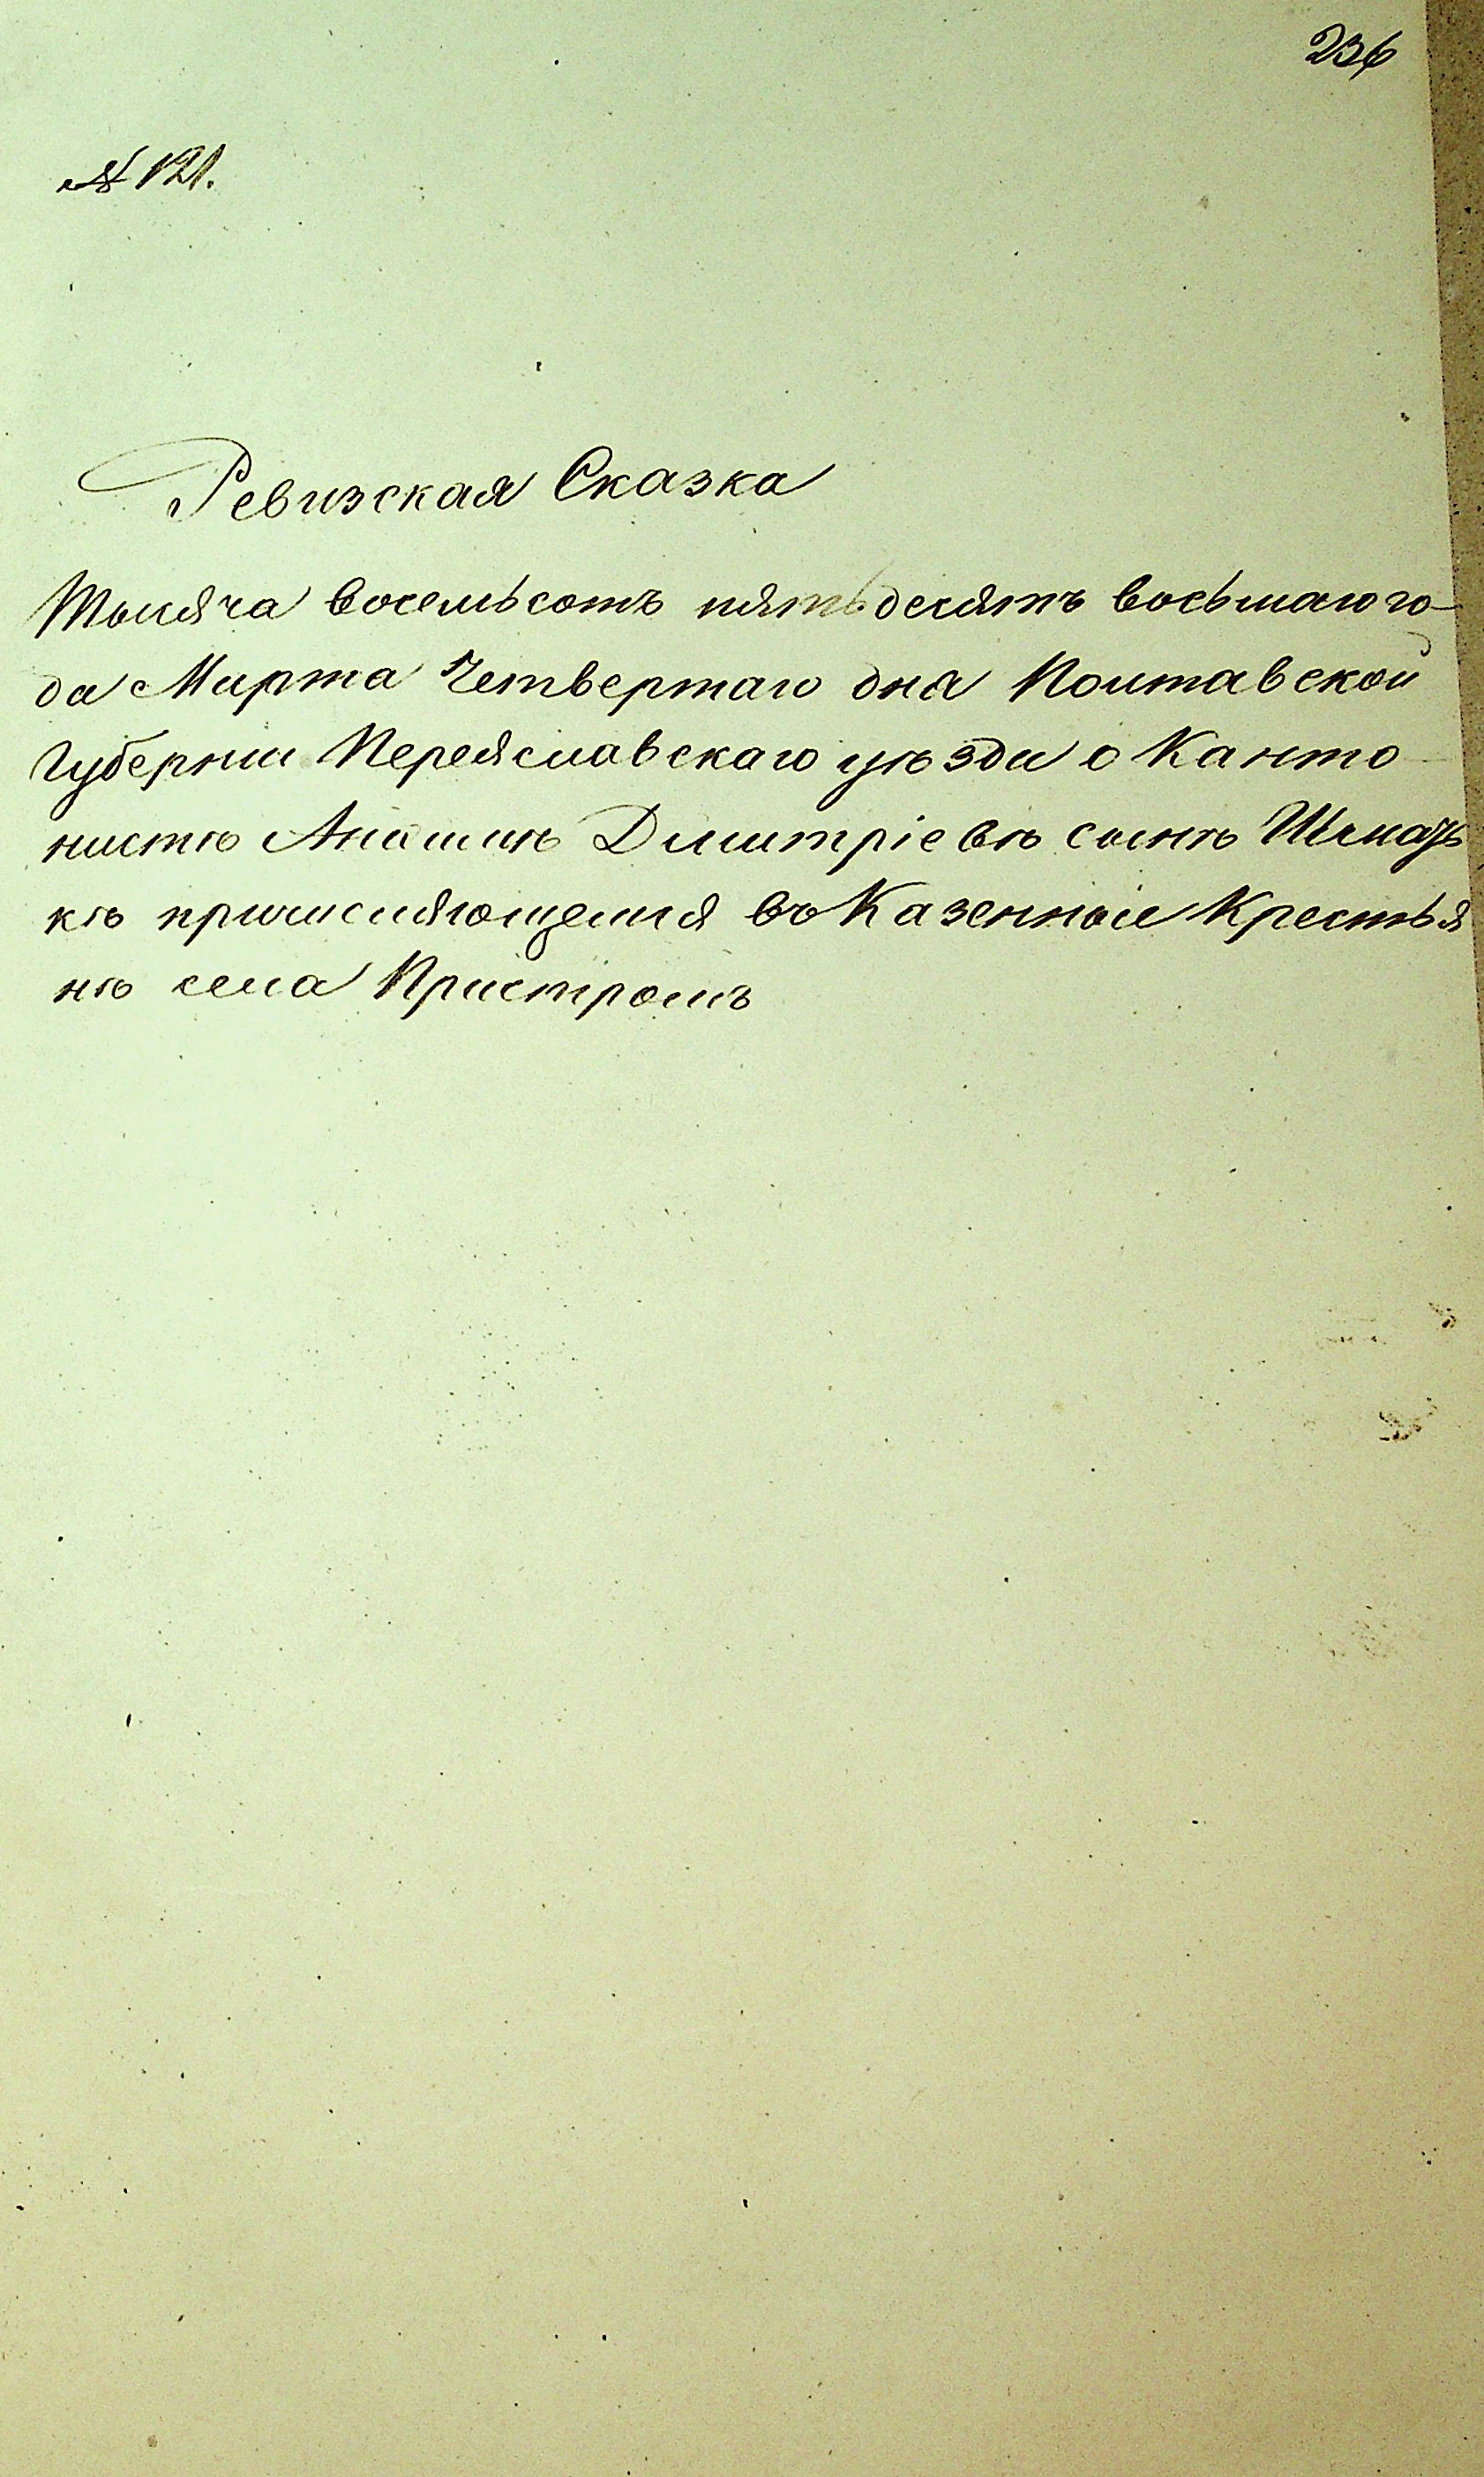 236
№ 121.
Ревизская Сказка
Тысяча восемьсотъ пятьдесятъ восьмаго го-
да Марта Четвертаго дня Полтавской
Губерніи Переяславскаго уѣзда о Канто
нистѣ Димитріевѣ сынѣ
кѣ причисляющемся въ Казенной Крестья
нѣ села Пристромъ